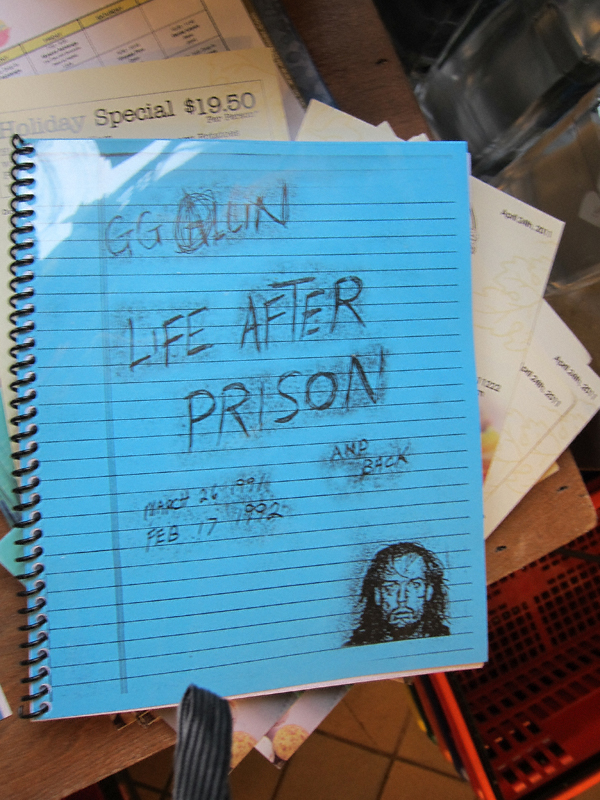 Holiday Special $19.50
Per Person
Potatoes
GG ALLIN
LIFE AFTER
PRISON
AND
BACK
MARCH 26 1991
FEB 17 1992
April 24th, 2011
April 24th, 2011
24th, 2011